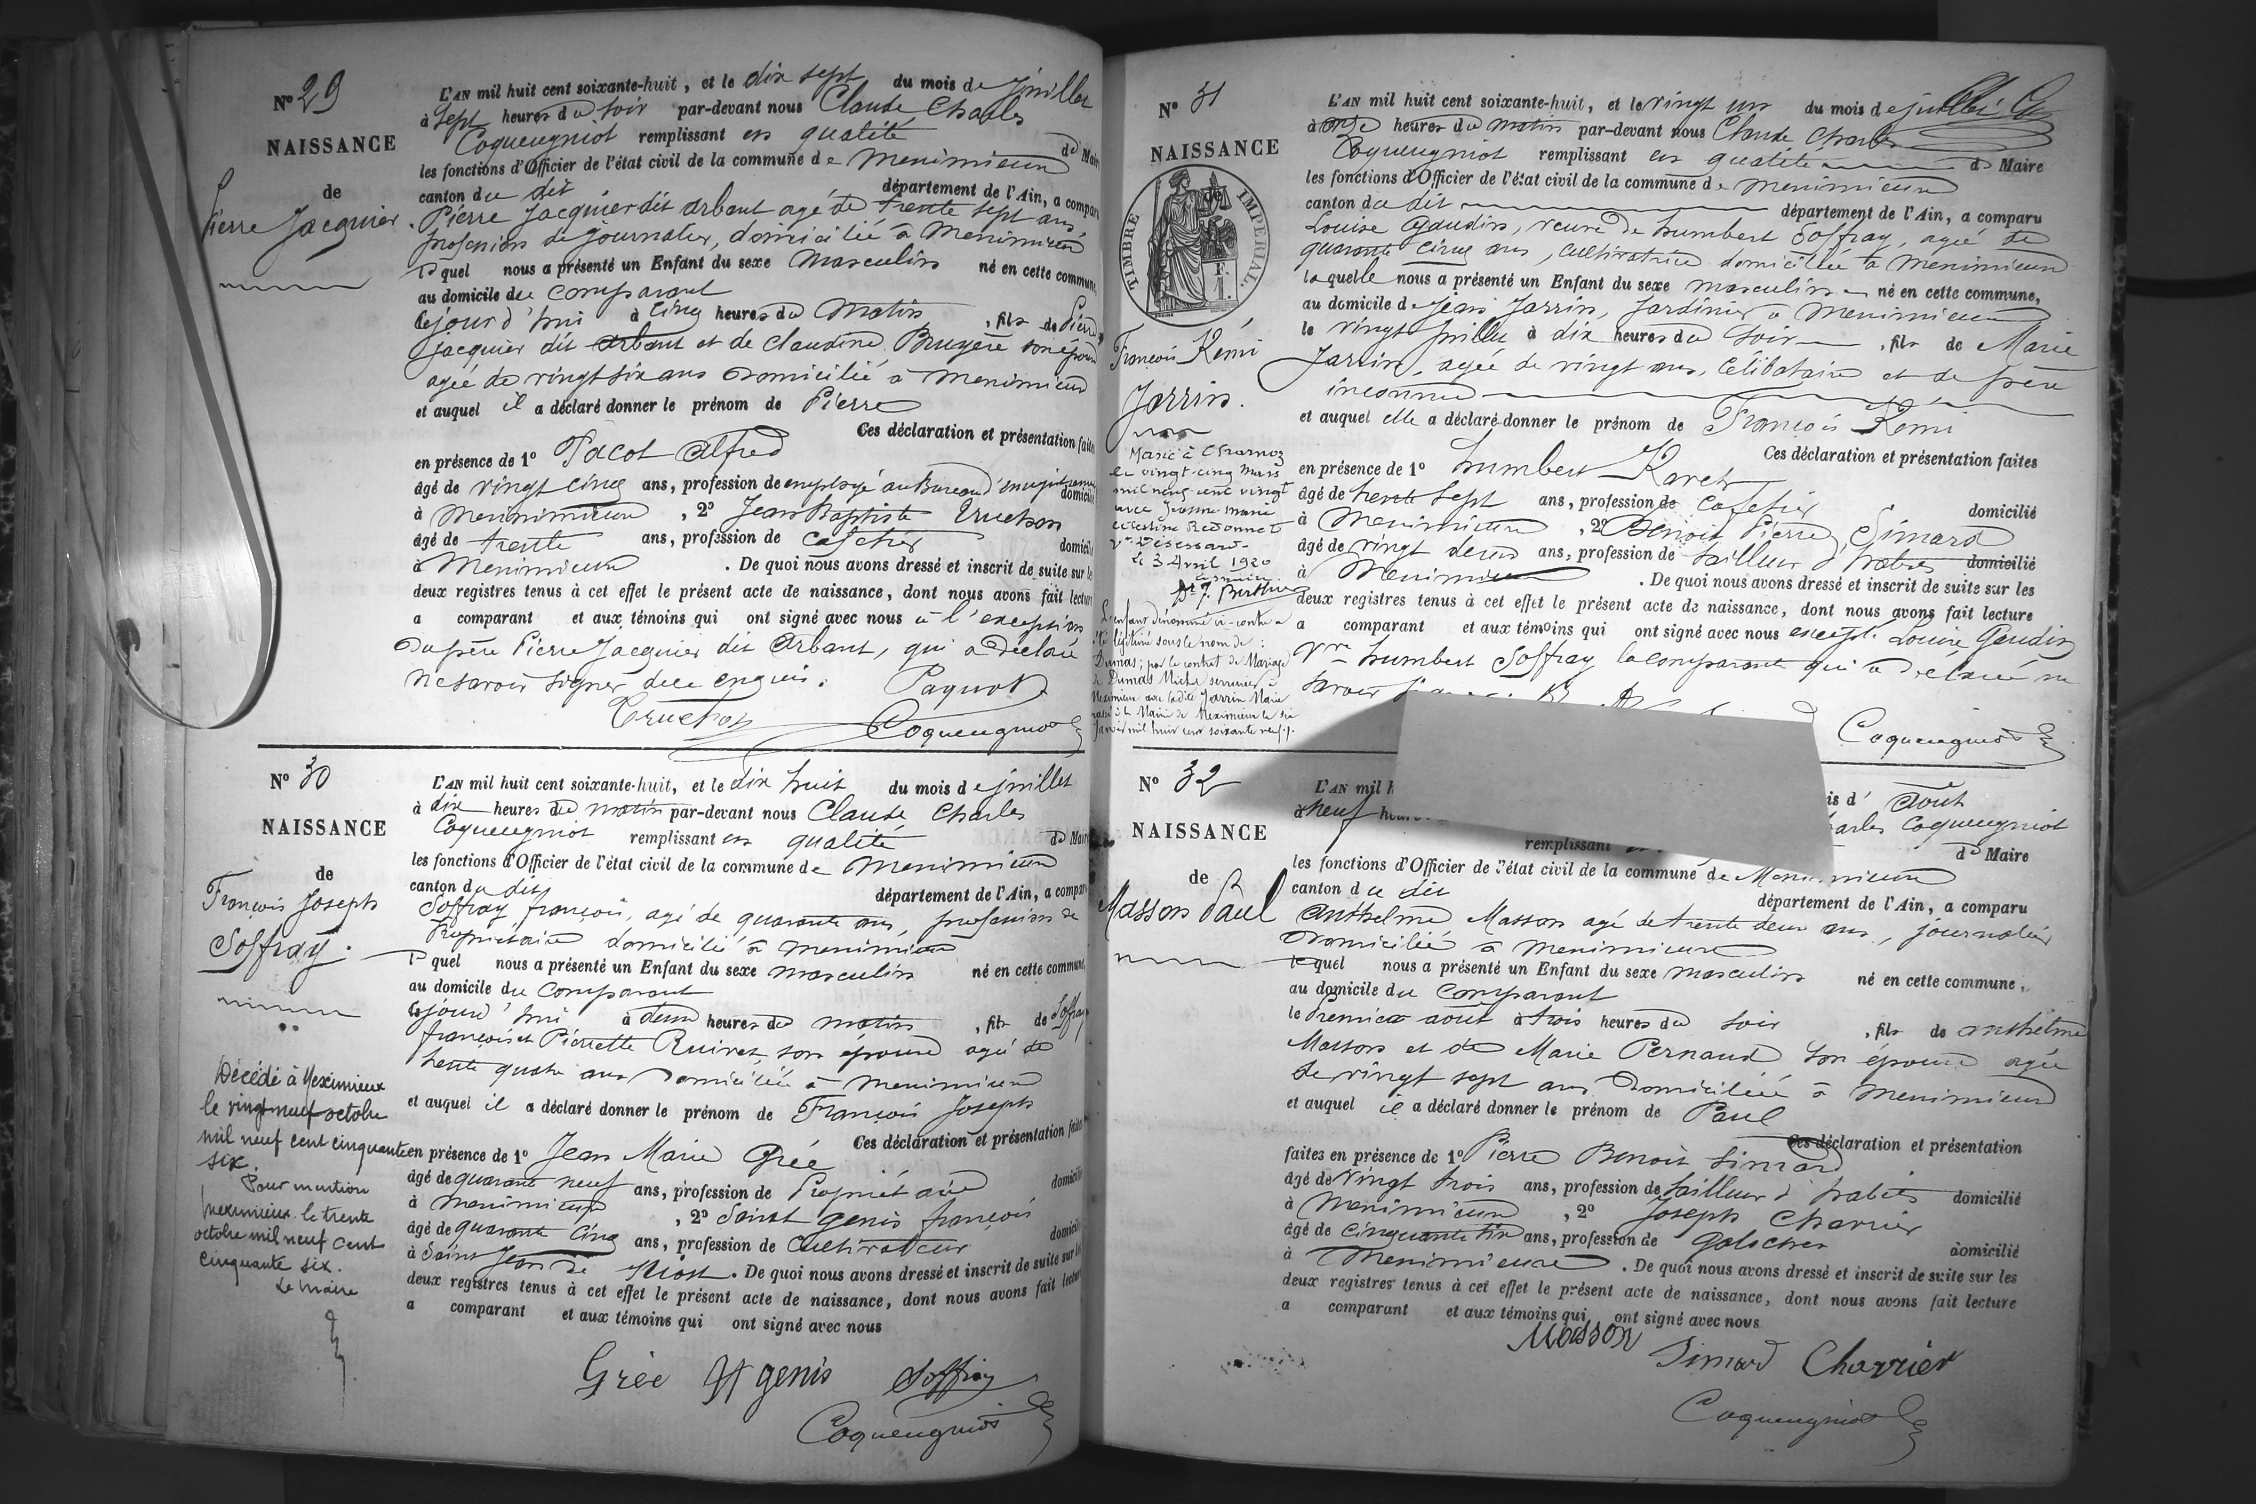 N° 29
NAISSANCE
de
Pierre Jacquier
L'AN mil huit cent soixante-huit, et le dix sept du mois de juillet
à Sept heures du soir par-devant nous Claude Charles
Coqueugniot remplissant en qualité de Maire
les fonctions d'Officier de l'état civil de la commune de Meximieux
canton du dit département de l'Ain, a comparu
Pierre Jacquier dit Arbant agé de trente sept ans,
profession de journalier, domicilié à Meximieux
lequel nous a présenté un Enfant du sexe Masculin né en cette commune,
au domicile du comparant
le jour d'hui à cinq heures du Matin, fils de Pierre
Jacquier dit Arbant et de Claudine Bruyère son épouse
agée de vingt six ans domiciliée à Meximieux
et auquel il a déclaré donner le prénom de Pierre
Ces déclaration et présentation faites
en présence de 1° Pacot Alfred
âgé de vingt cinq ans, profession de employé au Bureau d'enregistrement domicilié
à Meximieux, 2° Jean Baptiste Truchon
âgé de trente ans, profession de cafetier domicilié
à Meximieux. De quoi nous avons dressé et inscrit de suite sur les
deux registres tenus à cet effet le présent acte de naissance, dont nous avons fait lecture
a comparant et aux témoins qui ont signé avec nous à l'exception
du père Pierre Jacquier dit Arbant, qui a déclaré
ne savoir signer de ce enquis.
Truchon Coqueugniot
N° 30
NAISSANCE
de
François Joseph
Soffray.
Décédé à Meximieux
le vingt neuf octobre
mil neuf cent cinquante
six.
Pour mention
Meximieux le trente
octobre mil neuf cent
cinquante six.
Le Maire
L'AN mil huit cent soixante-huit, et le dix huit du mois de juillet
à dix heures du matin par-devant nous Claude Charles
Coqueugniot remplissant en qualité de Maire
les fonctions d'Officier de l'état civil de la commune de Meximieux
canton du dit département de l'Ain, a comparu
Soffray françois, agé de quarante ans, profession de
Propriétaire domicilié à Meximieux
lequel nous a présenté un Enfant du sexe masculin né en cette commune,
au domicile du comparant
le jour d'hui à deux heures du matin, fils de Soffray
françois et Pierrette Ruivet son épouse agée de
trente quatre ans domiciliée à Meximieux
et auquel il a déclaré donner le prénom de François Joseph
Ces déclaration et présentation faites
en présence de 1° Jean Marie Grée
âgé de quarante neuf ans, profession de Propriétaire domicilié
à Meximieux, 2° Saint genis françois
âgé de quarante cinq ans, profession de Cultivateur domicilié
à Saint Jean de Niost. De quoi nous avons dressé et inscrit de suite sur les
deux registres tenus à cet effet le présent acte de naissance, dont nous avons fait lecture
a comparant et aux témoins qui ont signé avec nous
Grée St genis Soffray
Coqueugniot
N° 31
NAISSANCE
de
TIMBRE IMPERIAL
1 F.
François Rémi
Jarrin.
Marié à Charnoz
le vingt-cinq Mars
mil neuf cent vingt
avec Jeanne Marie
le 3 Avril 1920
L'enfant dénommé ci-contre a
été légitimé sous le nom de :
Dumas; par le contrat de Mariage
de Dumas Michel serrurier à
Meximieux avec la dite Jarrin Marie
passé à la Mairie de Meximieux le six
Janvier mil huit cent soixante neuf.
L'AN mil huit cent soixante-huit, et le vingt un du mois de juillet
à onze heures du matin par-devant nous Claude Charles
Coqueugniot remplissant en qualité de Maire
les fonctions d'Officier de l'état civil de la commune de Meximieux
canton du dit département de l'Ain, a comparu
Louise Gaudin, veuve de humbert Soffray, agée de
quarante cinq ans, cultivatrice domiciliée à Meximieux
laquelle nous a présenté un Enfant du sexe masculin né en cette commune,
au domicile de Jean Jarrin, Jardinier à Meximieux
le vingt juillet à dix heures du soir, fils de Marie
Jarrin, agée de vingt ans, Célibataire et de père
inconnu
et auquel elle a déclaré donner le prénom de François Rémi
Ces déclaration et présentation faites
en présence de 1° humbert
âgé de trente sept ans, profession de Cafetier domicilié
à Meximieux, 2° Benoit Pierre Simard
âgé de vingt deux ans, profession de tailleur d'habits domicilié
à Meximieux. De quoi nous avons dressé et inscrit de suite sur les
deux registres tenus à cet effet le présent acte de naissance, dont nous avons fait lecture
a comparant et aux témoins qui ont signé avec nous excepté Louise Gaudin
Vve humbert Soffray la comparante qui a déclaré ne
savoir
Coqueugniot
N° 32
NAISSANCE
de
Masson Paul
L'AN mil h is d' Août
à neuf heur harles Coqueugniot
remplissant de Maire
les fonctions d'Officier de l'état civil de la commune de Meximieux
canton du dit département de l'Ain, a comparu
Anthelme Masson agé de trente deux ans, journalier
domicilié à Meximieux
lequel nous a présenté un Enfant du sexe masculin né en cette commune,
au domicile du comparant
le Premier août à trois heures du soir, fils de Anthelme
Masson et de Marie Pernaud son épouse agée
de vingt sept ans domiciliée à Meximieux
et auquel il a déclaré donner le prénom de Paul
Ces déclaration et présentation
faites en présence de 1° Pierre Benoit Simard
âgé de Vingt trois ans, profession de tailleur d'habits domicilié
à Meximieux, 2° Joseph Charrier
âgé de cinquante six ans, profession de Galocher domicilié
à Meximieux. De quoi nous avons dressé et inscrit de suite sur les
deux registres tenus à cet effet le présent acte de naissance, dont nous avons fait lecture
a comparant et aux témoins qui ont signé avec nous
Masson Simard Charrier
Coqueugniot